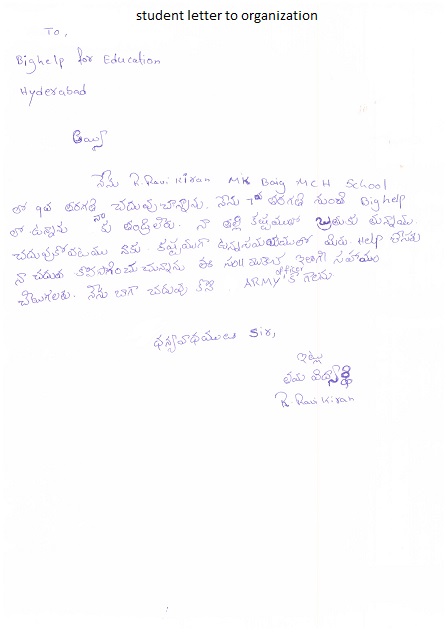 student letter to organization
To,
Bighelp for Education
Hyderabad
ఆయ్యా
నేను R.Ravi Kiran MK Baig MCH School
లో 9వ తరగతి చదువుచున్నాను. నేను 7వ తరగతి నుంచి Bighelp
లో ఉన్నాను నాకు తండ్రిలేరు. నా తల్లి కష్టములో బ్రతుకు తున్నాము.
చదువుకోవటము నాకు కష్టముగా ఉన్నసమయములో మీరు Help చేసినారు
నా చదువు కొనసాగించు చున్నాను ఈ సహాయం
చేయగలరు. నేను బాగా చదువు కొని ARMY officer
ధన్యవాధములు Sir,
ఇట్లు
తమ విద్యార్థి
R. Ravi Kiran